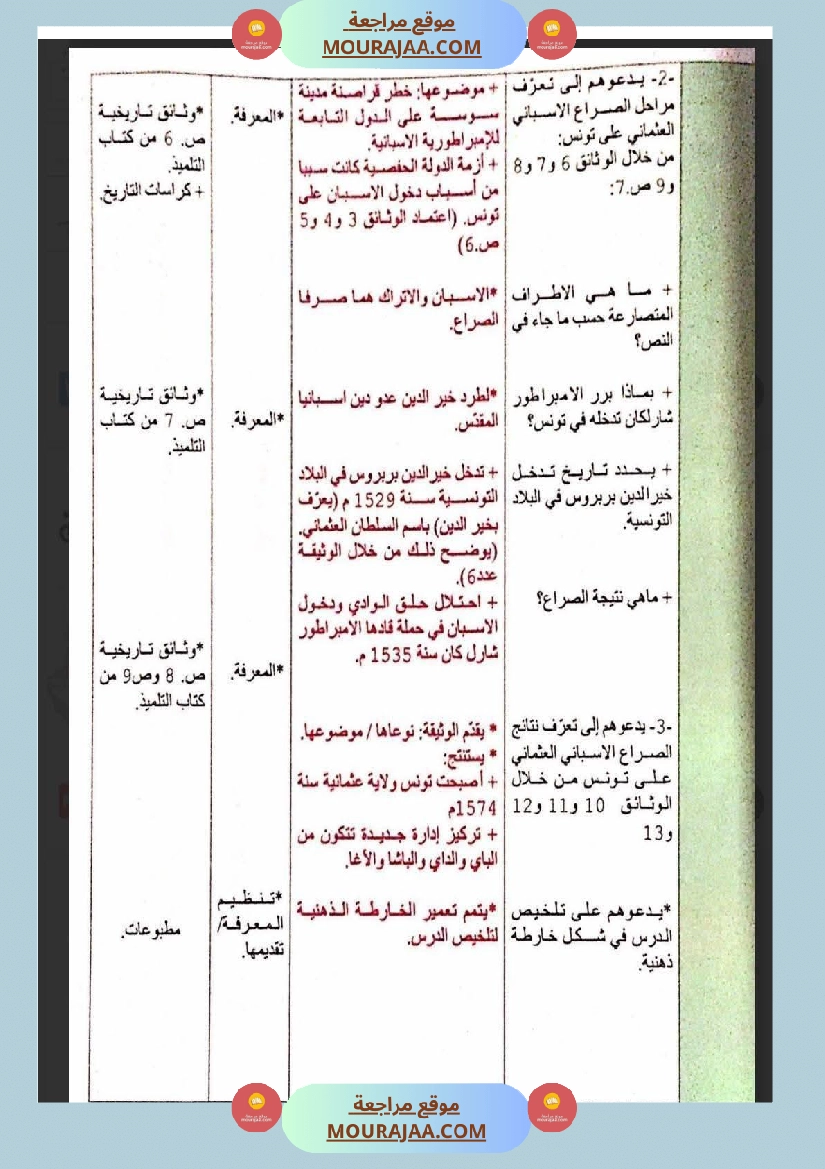 موقع مراجعة
MOURAJAA.COM
-2- يدعوهم إلى تعرّف
مراحل الصراع الاسباني
العثماني على تونس:
من خلال الوثائق 6 و7 و8
و9 ص.7:
+ ما هي الاطراف
المتصارعة حسب ما جاء في
النص؟
+ بماذا برر الامبراطور
شارلكان تدخله في تونس؟
+ يحدد تاريخ تدخل
خيرالدين بربروس في البلاد
التونسية.
+ ماهي نتيجة الصراع؟
-3- يدعوهم إلى تعرّف نتائج
الصراع الاسباني العثماني
على تونس من خلال
الوثائق 10 و11 و12
و13
*يدعوهم على تلخيص
الدرس في شكل خارطة
ذهنية.
+ موضوعها: خطر قراصنة مدينة
سوسة على الدول التابعة
للإمبراطورية الاسبانية.
+ أزمة الدولة الحفصية كانت سببا
من أسباب دخول الاسبان على
تونس. (اعتماد الوثائق 3 و4 و5
ص.6)
*الاسبان والاتراك هما صرفا
الصراع.
*لطرد خير الدين عدو دين اسبانيا
المقدّس.
+ تدخل خيرالدين بربروس في البلاد
التونسية سنة 1529 م (يعرّف
بخير الدين) باسم السلطان العثماني.
(يوضح ذلك من خلال الوثيقة
عدد6).
+ احتلال حلق الوادي ودخول
الاسبان في حملة قادها الامبراطور
شارل كان سنة 1535 م.
* يقدّم الوثيقة: نوعاها / موضوعها.
* يستنتج:
+ أصبحت تونس ولاية عثمانية سنة
1574م
+ تركيز إدارة جديدة تتكون من
الباي والداي والباشا والأغا.
*يتمم تعمير الخارطة الذهنية
لتلخيص الدرس.
*المعرفة.
*المعرفة.
*المعرفة.
*تنظيم
المعرفة/
تقديمها.
*وثائق تاريخية
ص. 6 من كتاب
التلميذ.
+ كراسات التاريخ.
*وثائق تاريخية
ص. 7 من كتاب
التلميذ.
*وثائق تاريخية
ص. 8 وص9 من
كتاب التلميذ.
مطبوعات.
موقع مراجعة
MOURAJAA.COM